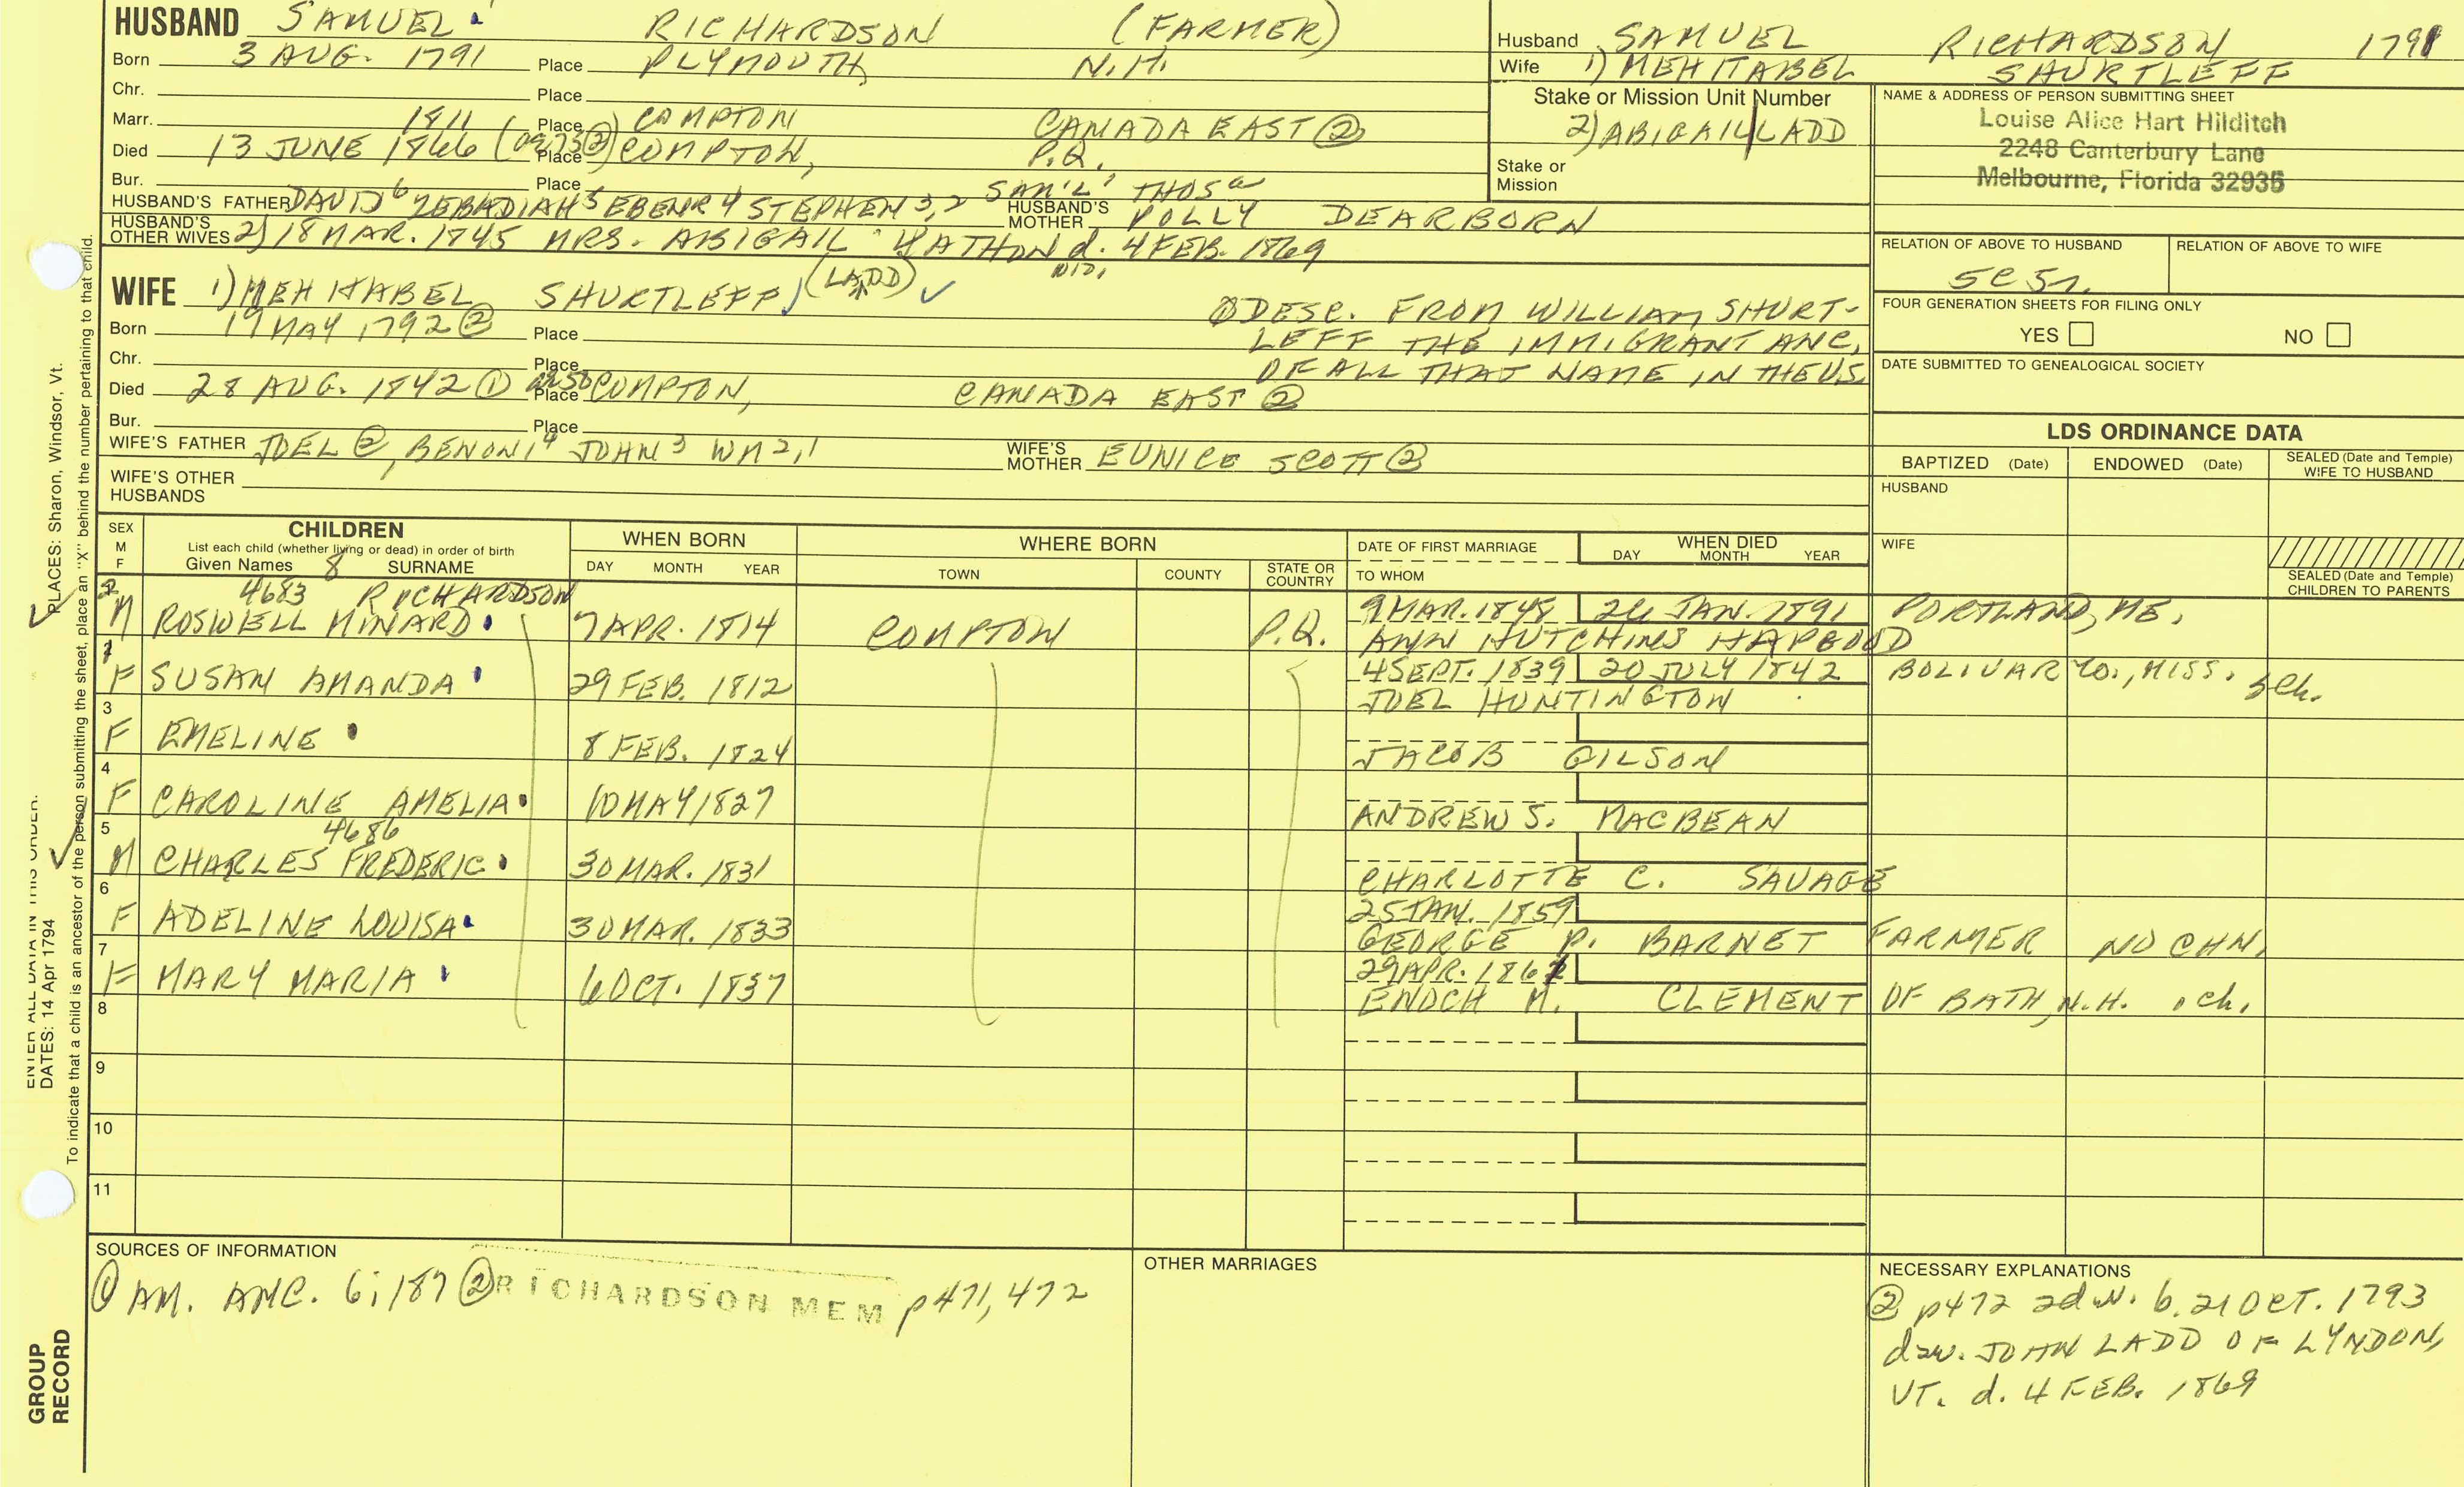 HUSBAND SAMUEL RICHARDSON (FARMER)
Born 3 AUG. 1791 Place PLYMOUTH N.H.
Chr. Place
Marr. 1811 Place COMPTON CANADA EAST ②
Died 13 JUNE 1866 ( ②) Place COMPTON, P.Q.
Bur. Place
HUSBAND'S FATHER DAVID 6 ZEBADIAH 5 EBENR 4 STEPHEN 3,2 SAM'L 1 THOS a HUSBAND'S MOTHER POLLY DEARBORN
HUSBAND'S OTHER WIVES 2) 18 MAR. 1845 MRS. ABIGAIL d. 4 FEB. 1869
WID.
(LADD)
WIFE 1) MEHITABEL SHURTLEFF
Born 19 MAY 1792 ② Place
Chr. Place
Died 28 AUG. 1842 ① Place COMPTON, CANADA EAST ②
Bur. Place
DESC. FROM WILLIAM SHURT-
LEFF THE IMMIGRANT ANC.
OF ALL THAT NAME IN THE U.S.
WIFE'S FATHER JOEL ②, BENONI 4 JOHN 3 WM 2,1 WIFE'S MOTHER EUNICE SCOTT ②
WIFE'S OTHER HUSBANDS
Husband SAMUEL RICHARDSON 1791
Wife 1) MEHITABEL SHURTLEFF
Stake or Mission Unit Number
2) ABIGAIL LADD
Stake or
Mission
NAME & ADDRESS OF PERSON SUBMITTING SHEET
Louise Alice Hart Hilditch
2248 Canterbury Lane
Melbourne, Florida 32935
RELATION OF ABOVE TO HUSBAND RELATION OF ABOVE TO WIFE
FOUR GENERATION SHEETS FOR FILING ONLY
YES NO
DATE SUBMITTED TO GENEALOGICAL SOCIETY
LDS ORDINANCE DATA
BAPTIZED (Date) ENDOWED (Date) SEALED (Date and Temple) WIFE TO HUSBAND
HUSBAND
WIFE
SEALED (Date and Temple) CHILDREN TO PARENTS
SEX M F
CHILDREN
List each child (whether living or dead) in order of birth
Given Names 8 SURNAME
WHEN BORN
DAY MONTH YEAR
WHERE BORN
TOWN COUNTY STATE OR COUNTRY
DATE OF FIRST MARRIAGE
TO WHOM
WHEN DIED
DAY MONTH YEAR
2 4683 RICHARDSON 9 MAR. 1848 26 JAN. 1891 PORTLAND, ME.
M ROSWELL MINARD 7 APR. 1814 COMPTON P.Q. ANN HUTCHINS HAPGOOD
1 4 SEPT. 1839 20 JULY 1842 BOLIVAR CO., MISS. sch.
F SUSAN AMANDA 29 FEB. 1812 JOEL HUNTINGTON
3
F EMELINE 8 FEB. 1824 JACOB GILSON
4
F CAROLINE AMELIA 10 MAY 1827 ANDREW S. MACBEAN
5 4686
M CHARLES FREDERIC 30 MAR. 1831 CHARLOTTE C. SAVAGE
6 25 JAN. 1859
F ADELINE LOUISA 30 MAR. 1833 GEORGE P. BARNET FARMER NO CHN.
7 29 APR. 186
F MARY MARIA 6 OCT. 1837 ENOCH M. CLEMENT OF BATH, N.H. ch.
8
9
10
11
SOURCES OF INFORMATION
① AM. ANC. 6; 187 ② RICHARDSON MEM p471, 472
OTHER MARRIAGES
NECESSARY EXPLANATIONS
② p472 2d w. b. 21 OCT. 1793
dau. JOHN LADD OF LYNDON,
VT. d. 4 FEB. 1869
PLACES: Sharon, Windsor, Vt.
ENTER ALL DATA IN THIS ORDER:
DATES: 14 Apr 1794
To indicate that a child is an ancestor of the person submitting the sheet, place an "X" behind the number pertaining to that child.
GROUP
RECORD